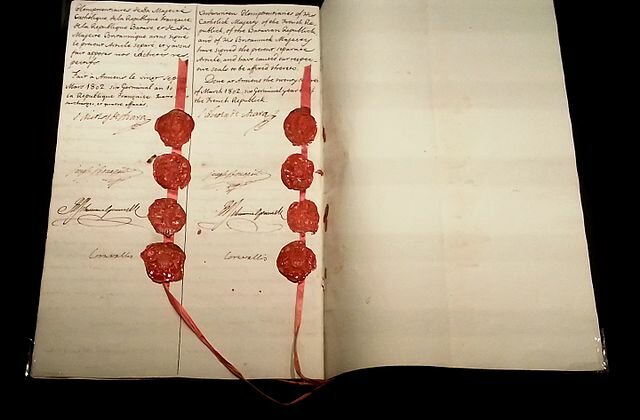 Plenipotentiaires de Sa Majesté
Catholique de la République Française
de la République Batave et de Sa
Majesté Britannique avons signé
le présent Article séparé et y avons
fait apposer nos cachets res-
pectifs.
Fait à Amiens le vingt sept
Mars 1802 six Germinal an 10 de
la République Française
Nicolas de Azara
Joseph Bonaparte
Schimmelpenninck
Cornwallis
Plenipotentiaries of His
Catholick Majesty of the French Re-
publick of the Batavian Republick
and of His Britannick Majesty
have signed the present separate
Article, and have caused our respec-
tive seals to be affixed thereto.
Done at Amiens the twenty seventh
of March 1802, six Germinal year 10 of
the French Republick
Nicolas de Azara
Joseph Bonaparte
Schimmelpenninck
Cornwallis